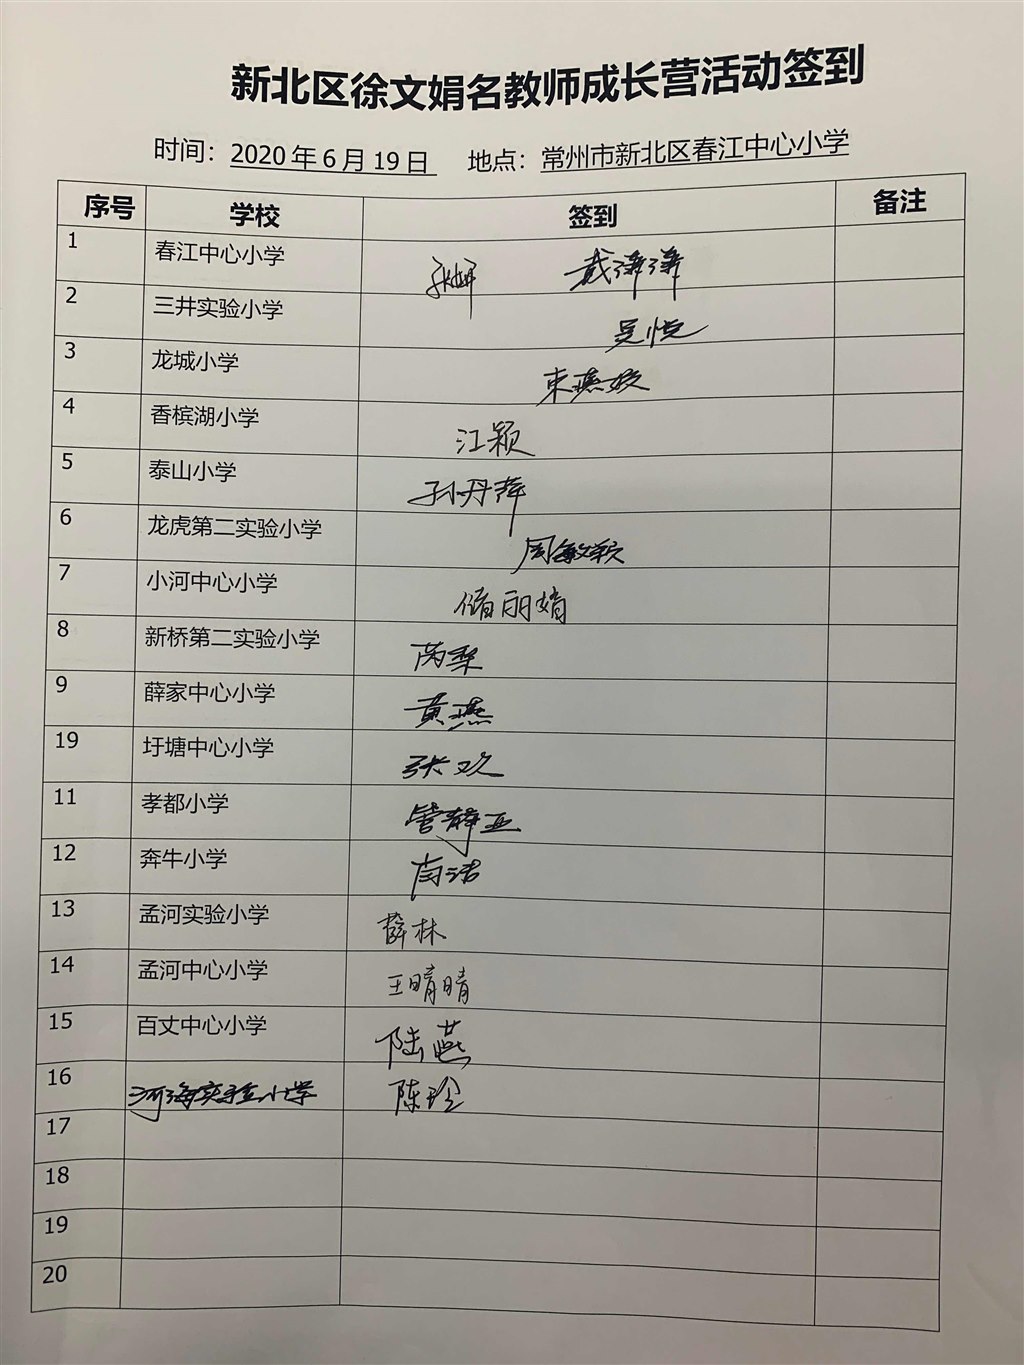 新北区徐文娟名教师成长营活动签到
时间：2020年6月19日 地点：常州市新北区春江中心小学
序号 学校 签到 备注
1 春江中心小学 张妍 戴泽泽
2 三井实验小学 吴悦
3 龙城小学 束燕姣
4 香槟湖小学 江颖
5 泰山小学 孙丹萍
6 龙虎第二实验小学 周敏颖
7 小河中心小学 储丽娟
8 新桥第二实验小学 芮梨
9 薛家中心小学 黄燕
19 圩塘中心小学 张欢
11 孝都小学 管静亚
12 奔牛小学
13 孟河实验小学 薛林
14 孟河中心小学 王晴晴
15 百丈中心小学 陆燕
16 河海实验小学 陈玲
17
18
19
20